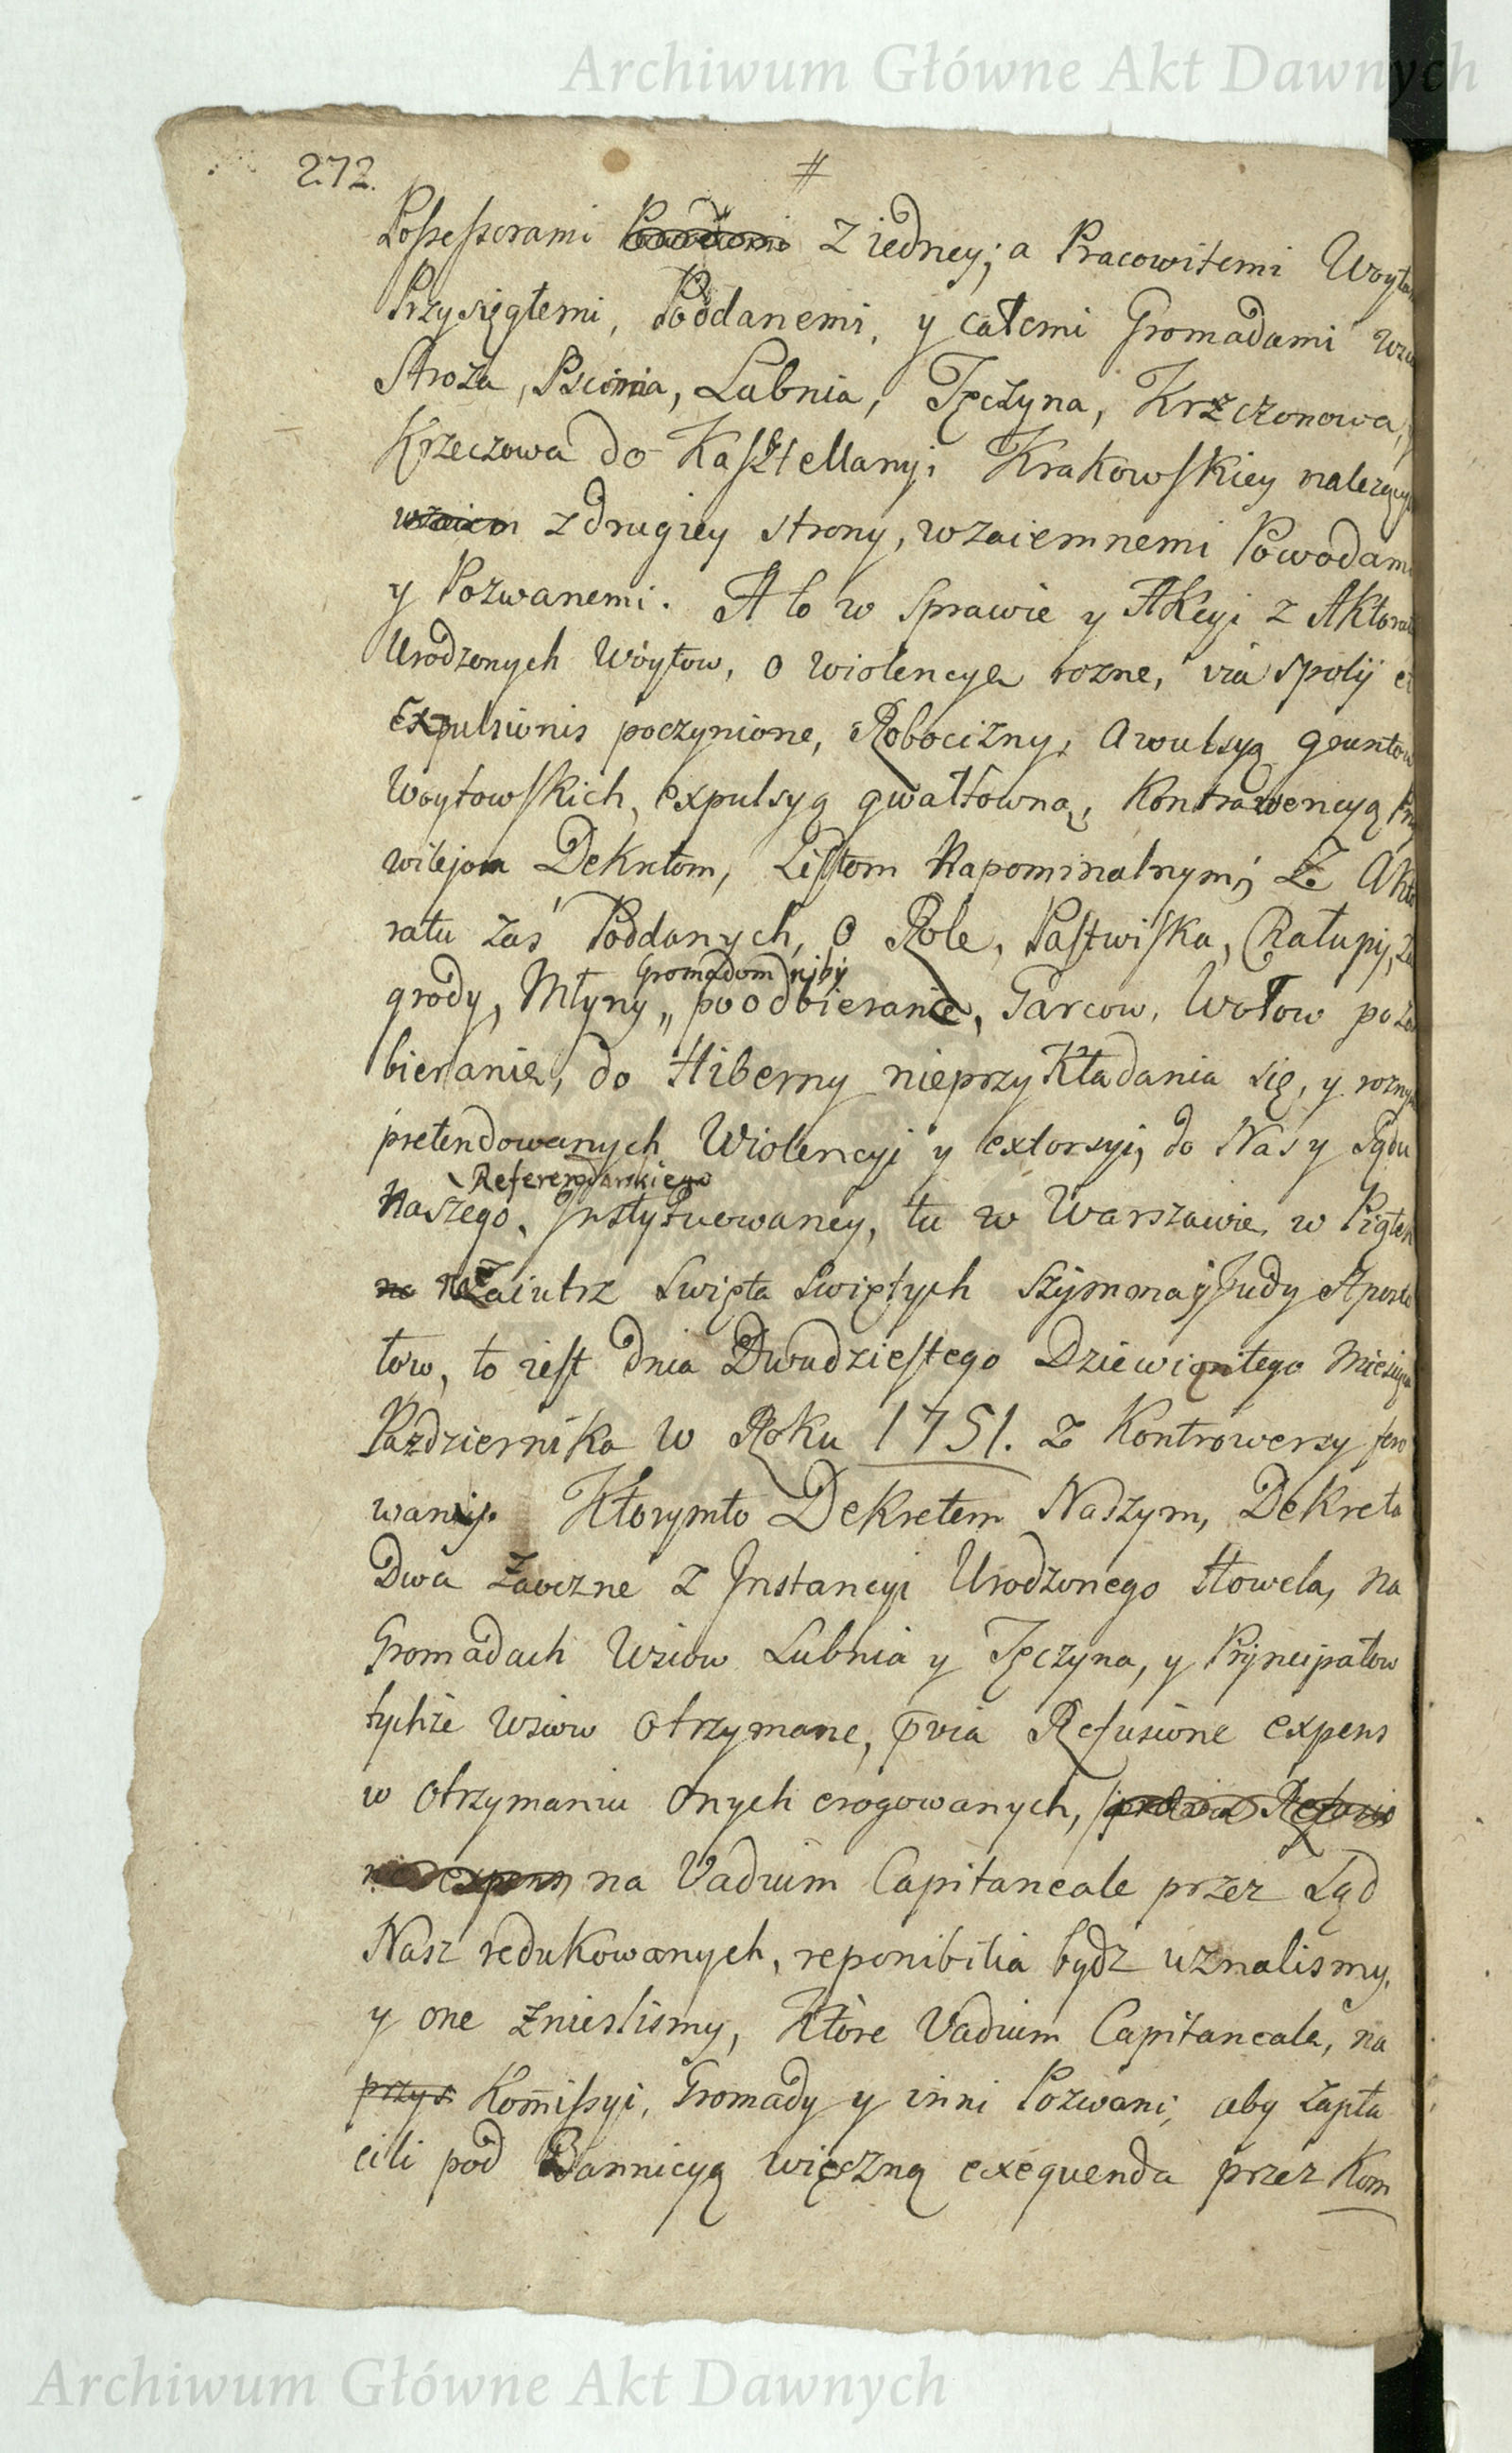 Archiwum Główne Akt Dawnych
272. #
Possessorami z iedney; a Pracowitemi Woyta
Przysięgłemi, Poddanemi, y całemi Gromadami wzw
Stroża, Pscimia, Lubnia, Tęczyna, Krzczonowa,
Krzeczowa do Kasztellanyi Krakowskiey należący
wzaiem z drugiey strony, wzaiemnemi Powodam
y Pozwanemi. A to w sprawie y Akcyi z Aktora
Urodzonych Woytow, o wiolencye rozne, via spolij et
Expulsionis poczynione, Robocizny, Awulsyą gruntow
Woytowskich, expulsyą gwałtowną, Kontrawencyą Pry
wilejom Dekretom, Listom Napominalnym; Z Akto
ratu zaś Poddanych, o Role, Pastwiska, Chałupy, Za
Gromadom niby
grody, Młyny, poodbieranie, Garcow, Wołow poza
bieranie, do Hiberny nieprzykładania się, y rozny
pretendowanych Wiolencyi y extorsyi, do Nas y Sądu
Referendarskiego
Naszego, Instytuowaney, tu w Warszawie, w Piątek
na Zaiutrz Swięta Swiętych Szymona y Judy Aposto
łow, to iest dnia Dwudziestego Dziewiątego Miesiąca
Pazdziernika w Roku 1751. z Kontrowersy fero
wany. Ktorymto Dekretem Naszym, Dekreta
Dwa Zaoczne z Instancyi Urodzonego Howela, na
Gromadach Wsiow Lubnia y Tęczyna, y Pryncipałow
tychże Wsiow otrzymane, pvia Refusione expens
w otrzymaniu onych erogowanych,
na Vadium Capitaneale przez Sąd
Nasz redukowanych, reponibilia bydz uznalismy,
y one znieslismy, Ktore Vadium Capitaneale, na
przys Kommissyi, Gromady y inni Pozwani, aby zapła
cili pod Bannicyą wieczną exequenda przez Kom
Archiwum Główne Akt Dawnych